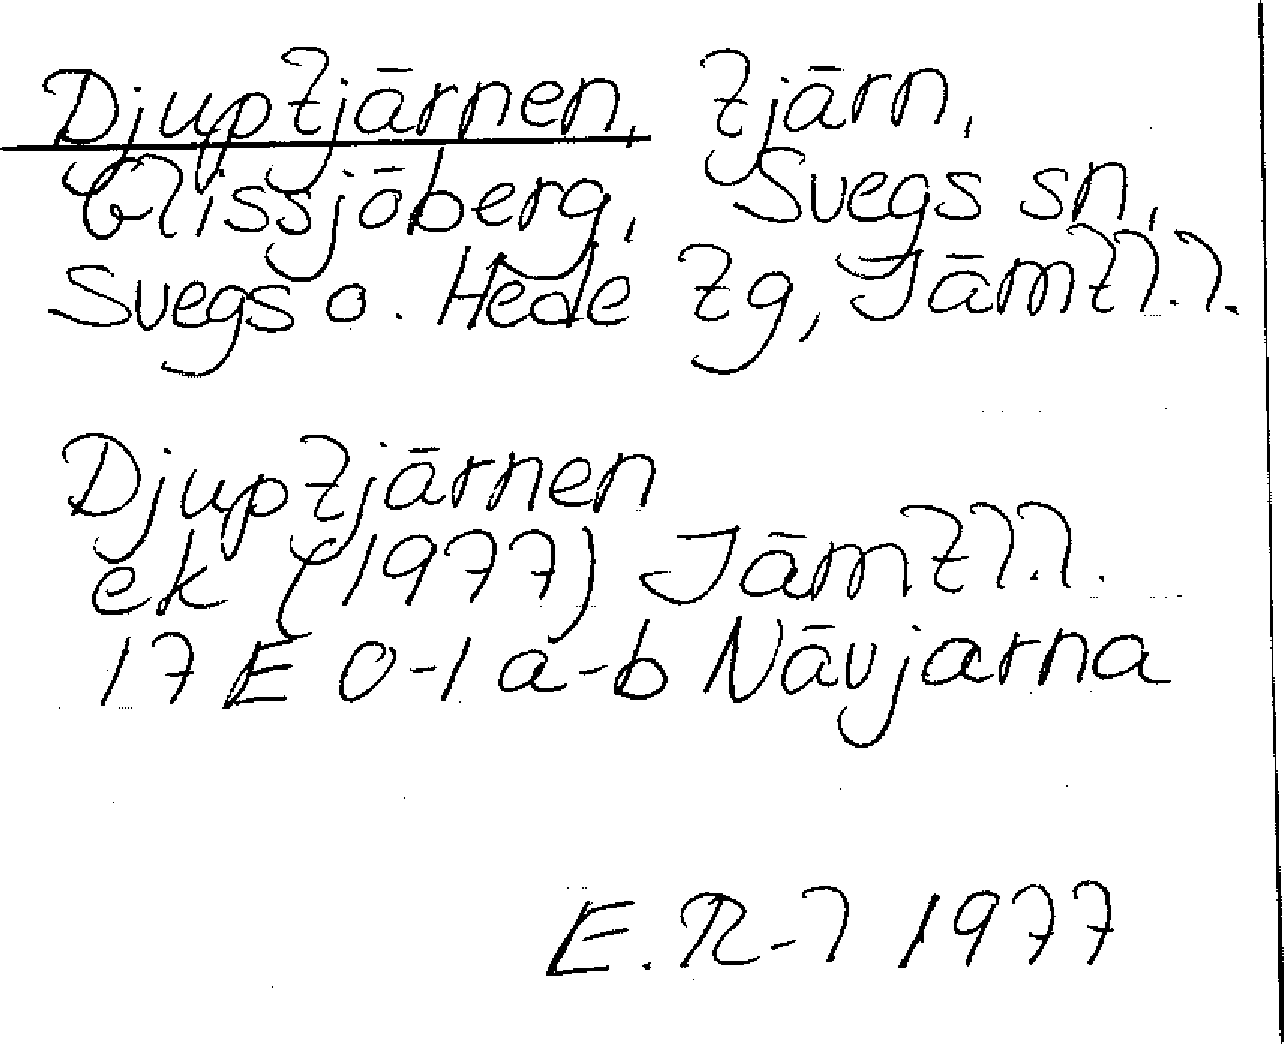 Djuptjärnen, tjärn,
Glissjöberg, Svegs sn,
Svegs o. Hede tg, Jämtl.l.
Djuptjärnen
ek (1977) Jämtl.l.
17 E 0-1 a-b Nävjarna
E. R-l 1977